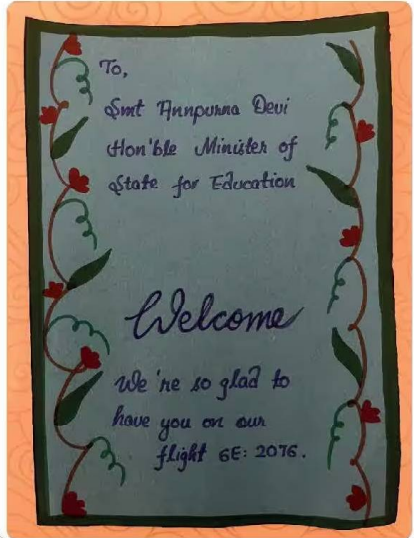 To,
Smt Annpurna Devi
Hon'ble Minister of
State for Education
Welcome
We're so glad to
have you on our
flight 6E: 2076.